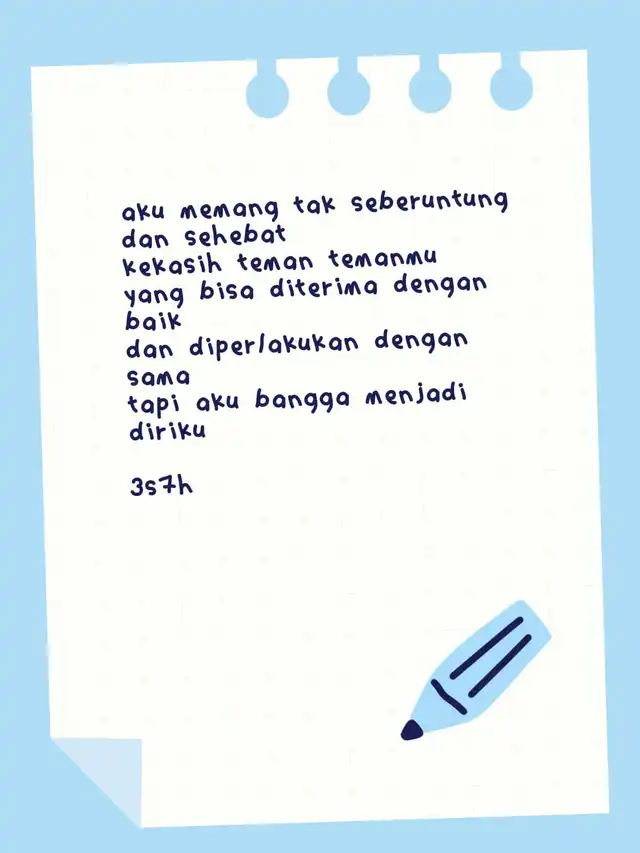 aku memang tak seberuntung
dan sehebat
kekasih teman temanmu
yang bisa diterima dengan
baik
dan diperlakukan dengan
sama
tapi aku bangga menjadi
diriku
3s7h